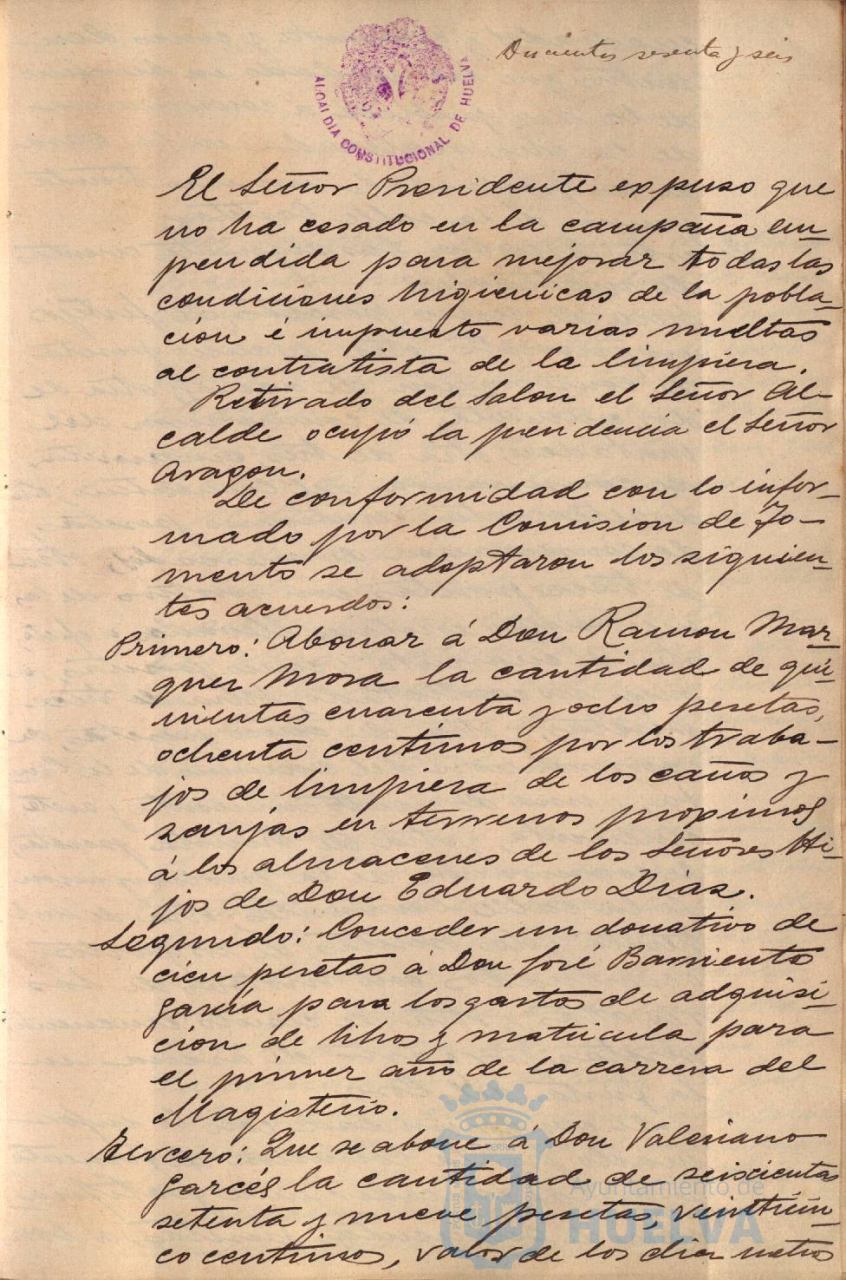 Ducientos sesenta y seis
ALCALDIA CONSTITUCIONAL DE HUELVA
El Señor Presidente expuso que
no ha cesado en la campaña em-
prendida para mejorar todas las
condiciones higienicas de la pobla-
cion é impuesto varias multas
al contratista de la limpieza.
Retirado del Salon el Señor Al-
calde ocupó la presidencia el Señor
Aragon.
De conformidad con lo infor-
mado por la Comision de Fo-
mento se adoptaron los siguien-
tes acuerdos:
Primero: Abonar á Don Ramon Mar-
quez Mora la cantidad de qui-
nientas cuarenta y ocho pesetas,
ochenta centimos por los traba-
jos de limpieza de los caños y
zanjas en terrenos proximos
á los almacenes de los Señores Hi-
jos de Don Eduardo Diaz.
Segundo: Conceder un donativo de
cien pesetas á Don José Barriento
Garcia para los gastos de adquisi-
cion de libros y matricula para
el primer año de la carrera del
Magisterio.
Tercero: Que se abone á Don Valeriano
Garcés la cantidad de seiscientas
setenta y nueve pesetas, veinticin-
co centimos, valor de los diez metros
Ayuntamiento de
HUELVA